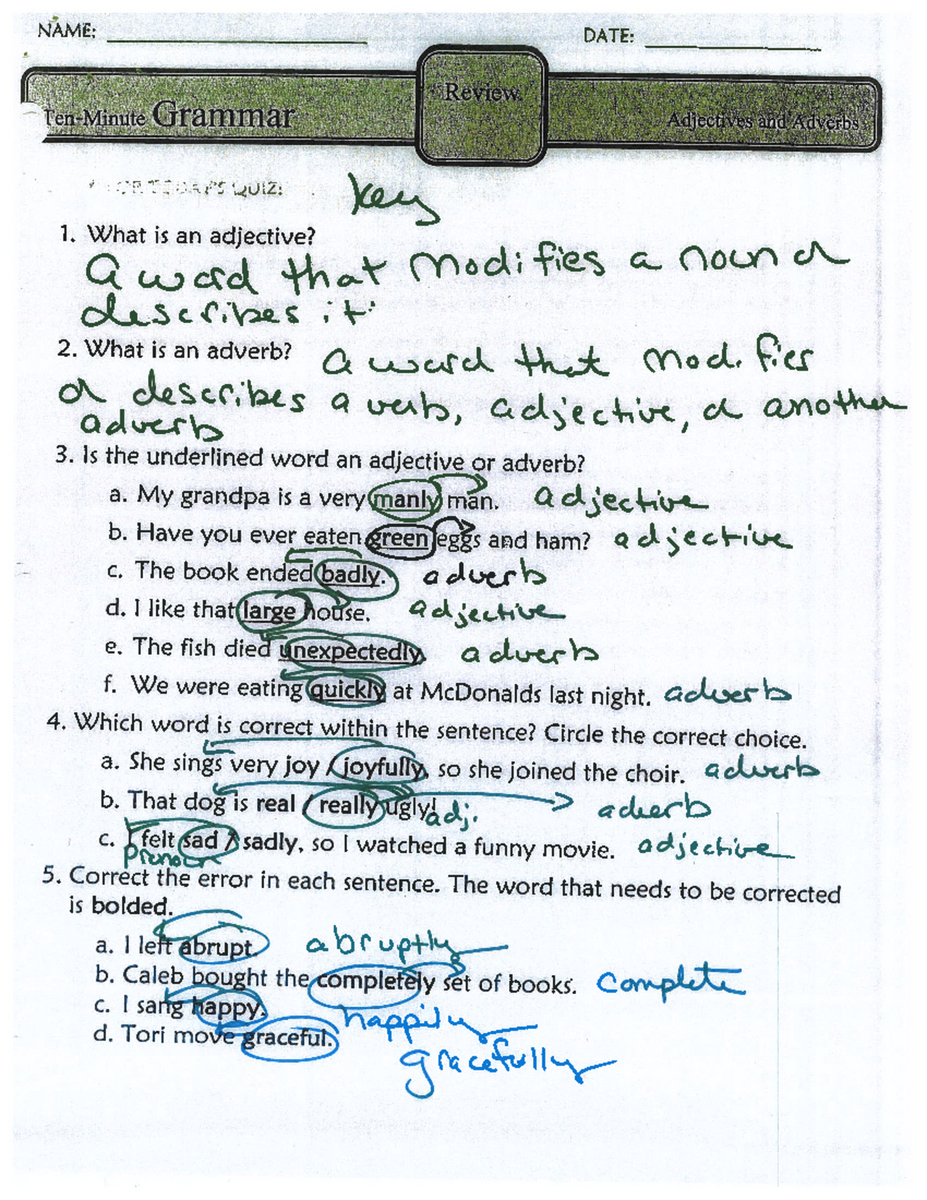 NAME: ____________ DATE: ____________
Review
Ten-Minute Grammar Adjectives and Adverbs
QUIZ:
Key
1. What is an adjective?
a word that modifies a noun or
describes it
2. What is an adverb? a word that modifies
or describes a verb, adjective, or another
adverb
3. Is the underlined word an adjective or adverb?
a. My grandpa is a very manly man. adjective
b. Have you ever eaten green eggs and ham? adjective
c. The book ended badly. adverb
d. I like that large house. adjective
e. The fish died unexpectedly. adverb
f. We were eating quickly at McDonalds last night. adverb
4. Which word is correct within the sentence? Circle the correct choice.
a. She sings very joy / joyfully, so she joined the choir. adverb
b. That dog is real / really ugly! adj. adverb
c. I felt sad / sadly, so I watched a funny movie. adjective
pronoun
5. Correct the error in each sentence. The word that needs to be corrected
is bolded.
a. I left abrupt. abruptly
b. Caleb bought the completely set of books. complete
c. I sang happy. happily
d. Tori move graceful. gracefully